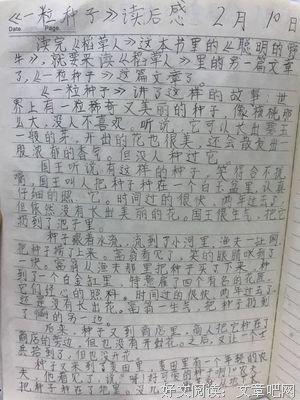 《一粒种子》读后感 2月10日
Date. Page.
读完《稻草人》这本书里的《聪明的野
牛》,就要来读《稻草人》里的另一篇文章
了,《一粒种子》这篇文章了。
《一粒种子》讲了这样的故事:世
界上有一粒稀奇又美丽的种子,像核桃那
么大,没人不喜欢。听说,它可以长出碧玉
一般的芽,开出的花也很美,还会散发出一
股浓郁的香气。但没人种过它。
国王听说有这样的种子,笑得合不拢
嘴,国王叫人把种子种在一个白玉盆里,认真
仔细的照 它。时间过的很快,两年过去了,
但依然没有长出美丽的花。国王很生气,把它
扔到了池子里。
种子顺着水流,流到了小河里,渔夫一
把种子捞了上来。富翁看见了,笑的眼睛
一块。富翁从渔夫那里把种子买了下来,种
到了一个白金缸里,特意雇了四个有名的花
它们 心的照料。时间过的很快,两年
还是没有长出花。富翁一 ,把种子扔到
了 的另一了。
后来,种子又到商店里,商人把它种在了
商店的旁边,但也没有开封花。之后,又让一个士
兵拾到了,但也没开花。
种子又来到了麦田里,麦田里有一个年轻的农
夫。他看见了,说:“ 好可爱的种子啊!”农夫
把种子种在了地里。没几
好文阅读:文章吧网